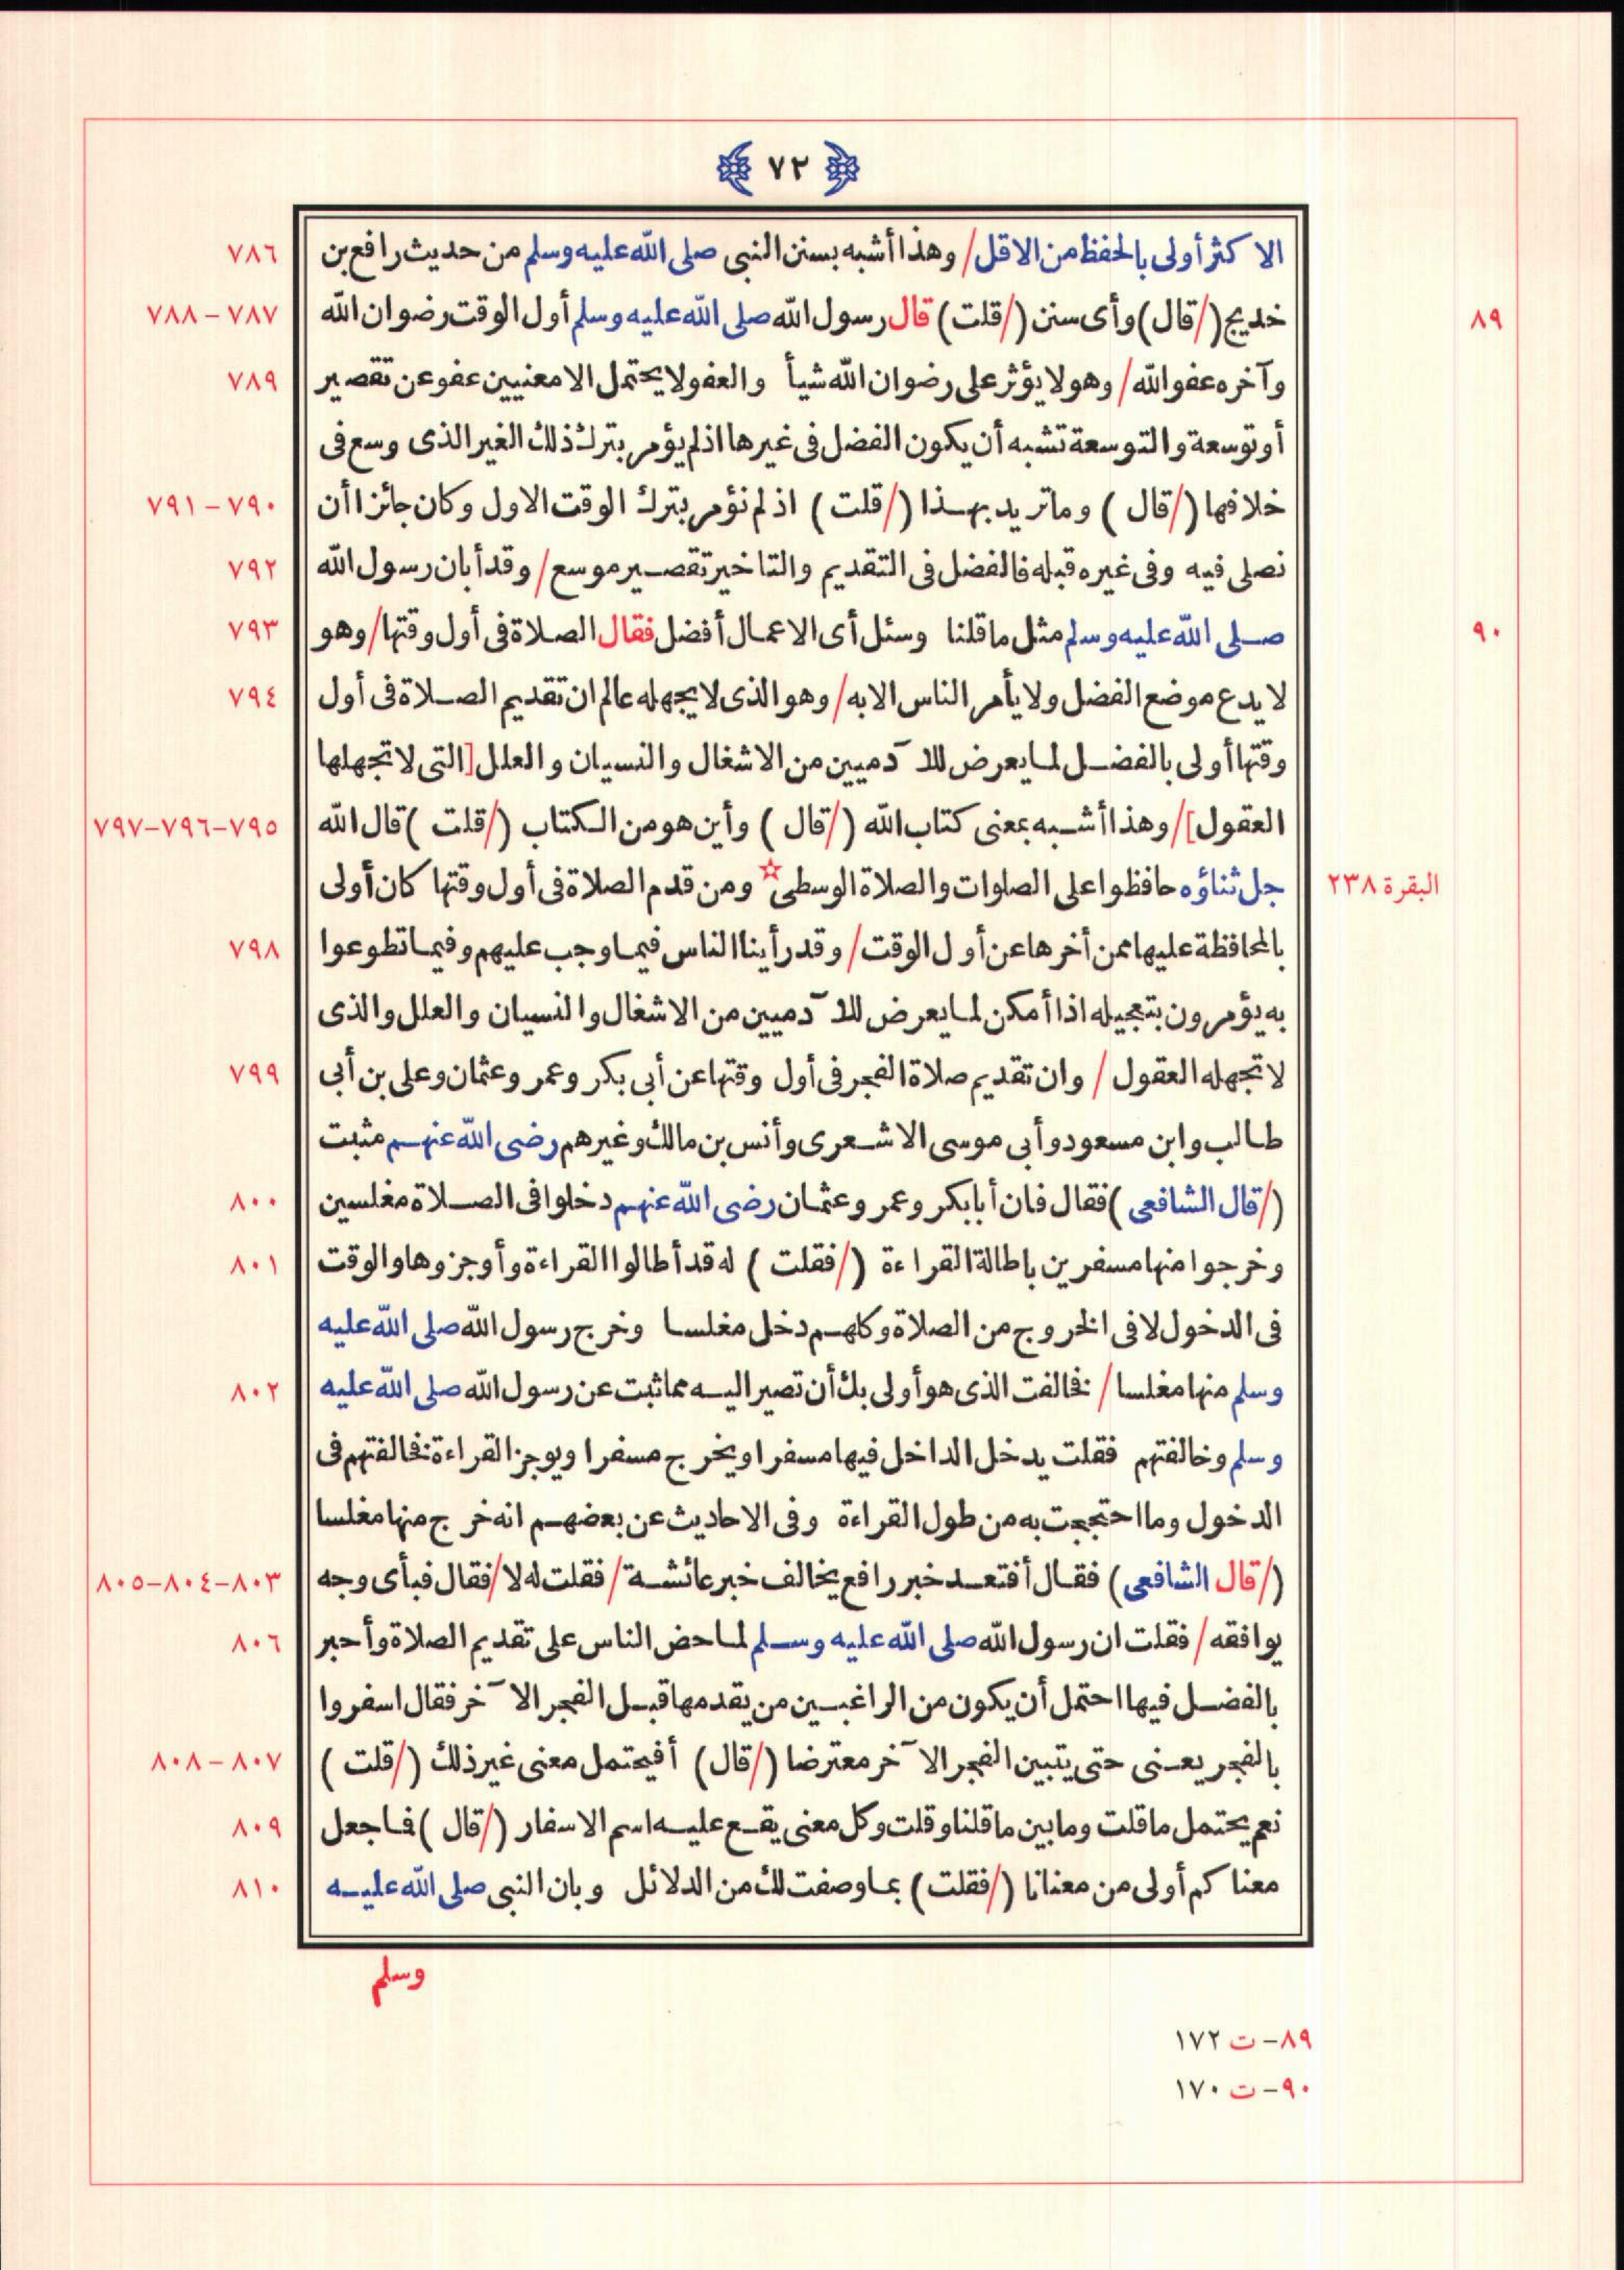 ٧٢
الاكثر أولى بالحفظ من الاقل/ وهذا أشبه بسنن النبى صلى الله عليه وسلم من حديث رافع بن ٧٨٦
٨٩ خديج (/قال) وأى سنن (/قلت) قال رسول الله صلى الله عليه وسلم أول الوقت رضوان الله ٧٨٧ – ٧٨٨
وآخره عفو الله/ وهو لا يؤثر على رضوان الله شيأ والعفو لا يحتمل الا معنيين عفو عن تقصير ٧٨٩
أو توسعة والتوسعة تشبه أن يكون الفضل فى غيرها اذ لم يؤمر بترك ذلك الغير الذى وسع فى
خلافها (/قال ) وما تريد بهذا (/قلت ) اذ لم نؤمر بترك الوقت الاول وكان جائزا أن ٧٩٠ – ٧٩١
نصلى فيه وفى غيره قبله فالفضل فى التقديم والتاخير تقصير موسع/ وقد أبان رسول الله ٧٩٢
٩٠ صلى الله عليه وسلم مثل ما قلنا وسئل أى الاعمال أفضل فقال الصلاة فى أول وقتها/ وهو ٧٩٣
لا يدع موضع الفضل ولا يأمر الناس الا به/ وهو الذى لا يجهله عالم ان تقديم الصلاة فى أول ٧٩٤
وقتها أولى بالفضل لما يعرض للآدميين من الاشغال والنسيان والعلل [التى لا تجهلها
العقول]/ وهذا أشبه بمعنى كتاب الله (/قال ) وأين هو من الكتاب (/قلت )قال الله ٧٩٥–٧٩٦–٧٩٧
البقرة ٢٣٨ جل ثناؤه حافظوا على الصلوات والصلاة الوسطى☆ ومن قدم الصلاة فى أول وقتها كان أولى
بالمحافظة عليها ممن أخرها عن أول الوقت/ وقد رأينا الناس فيما وجب عليهم وفيما تطوعوا ٧٩٨
به يؤمرون بتعجيله اذا أمكن لما يعرض للآدميين من الاشغال والنسيان والعلل والذى
لا تجهله العقول / وان تقديم صلاة الفجر فى أول وقتها عن أبى بكر وعمر وعثمان وعلى بن أبى ٧٩٩
طالب وابن مسعود وأبى موسى الاشعرى وأنس بن مالك وغيرهم رضى الله عنهم مثبت
(/قال الشافعى )فقال فان أبا بكر وعمر وعثمان رضى الله عنهم دخلوا فى الصلاة مغلسين ٨٠٠
وخرجوا منها مسفرين باطالة القراءة (/فقلت ) له قد أطالوا القراءة وأوجزوها والوقت ٨٠١
فى الدخول لا فى الخروج من الصلاة وكلهم دخل مغلسا وخرج رسول الله صلى الله عليه
وسلم منها مغلسا / فخالفت الذى هو أولى بك أن تصير اليه مما ثبت عن رسول الله صلى الله عليه ٨٠٢
وسلم وخالفتهم فقلت يدخل الداخل فيها مسفرا ويخرج مسفرا ويوجز القراءة فخالفتهم فى
الدخول وما احتججت به من طول القراءة وفى الاحاديث عن بعضهم انه خرج منها مغلسا
(/قال الشافعى) فقال أفتعد خبر رافع يخالف خبر عائشة/ فقلت له لا/ فقال فبأى وجه ٨٠٣–٨٠٤–٨٠٥
يوافقه/ فقلت ان رسول الله صلى الله عليه وسلم لما حض الناس على تقديم الصلاة وأحبر ٨٠٦
بالفضل فيها احتمل أن يكون من الراغبين من يقدمها قبل الفجر الآخر فقال اسفروا
بالفجر يعنى حتى يتبين الفجر الآخر معترضا (/قال) أفيحتمل معنى غير ذلك (/قلت ) ٨٠٧ – ٨٠٨
نعم يحتمل ما قلت وما بين ما قلنا وقلت وكل معنى يقع عليه اسم الاسفار (/قال )فما جعل ٨٠٩
معناكم أولى من معنانا (/فقلت ) بما وصفت لك من الدلائل وبان النبى صلى الله عليه ٨١٠
وسلم
٨٩– ت ١٧٢
٩٠– ت ١٧٠